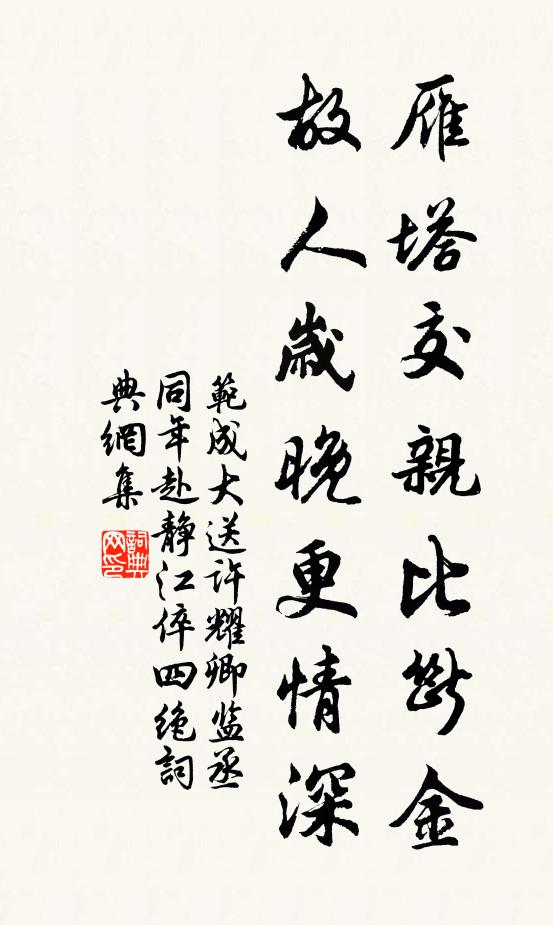 雁塔交親比断金
故人歳晚更情深
範成大送許耀卿监丞
同年赴静江倅四绝詞
典網集
詞典网印